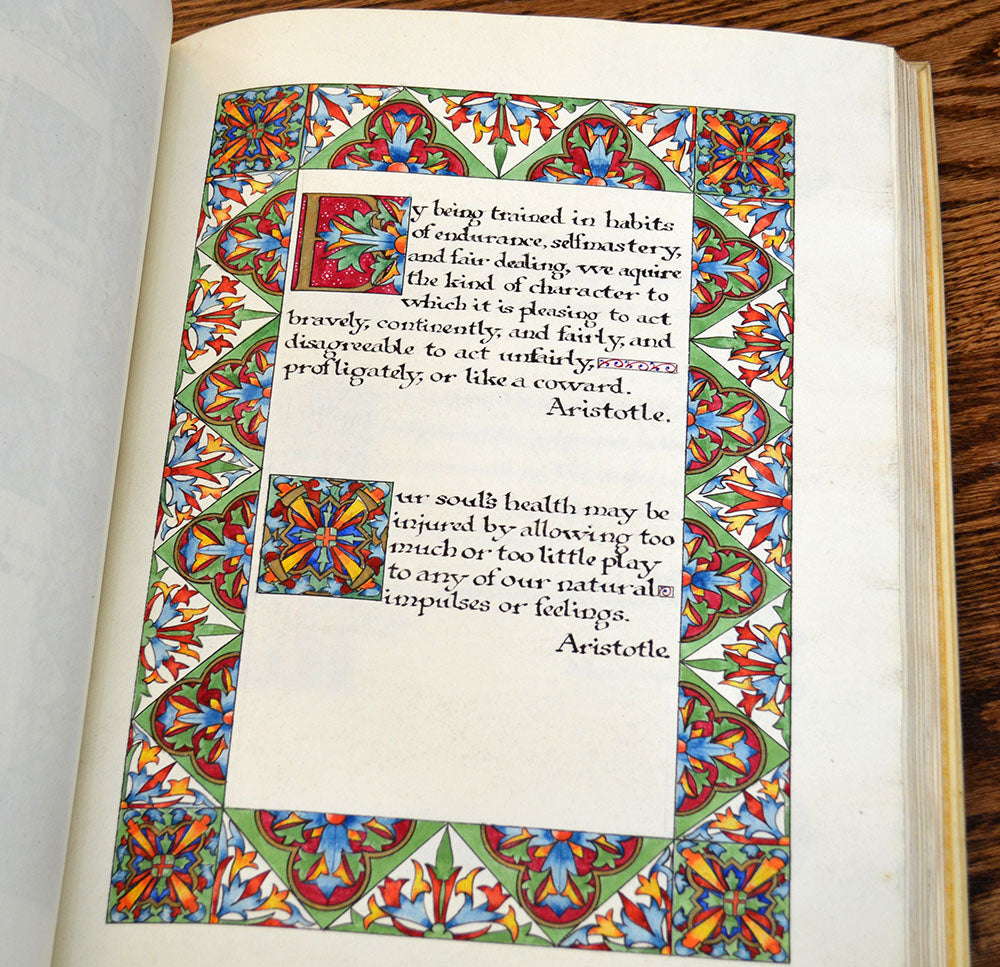 By being trained in habits
of endurance, selfmastery,
and fair dealing, we aquire
the kind of character to
which it is pleasing to act
bravely, continently, and fairly, and
disagreeable to act unfairly,
profligately, or like a coward.
Aristotle.
Our soul's health may be
injured by allowing too
much or too little play
to any of our natural
impulses or feelings.
Aristotle.